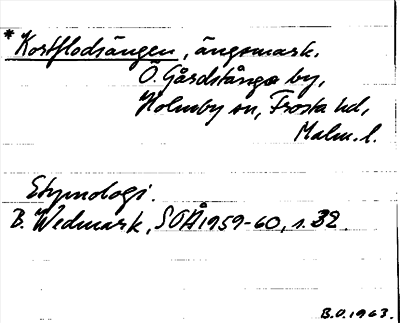 *Kortflodsängen, ängsmark,
Ö. Gårdstånga by,
Holmby sn, Frosta hd,
Malm. l.
Etymologi.
B. Wedmark, SOÅ 1959-60, s. 32.
B.O. 1963.